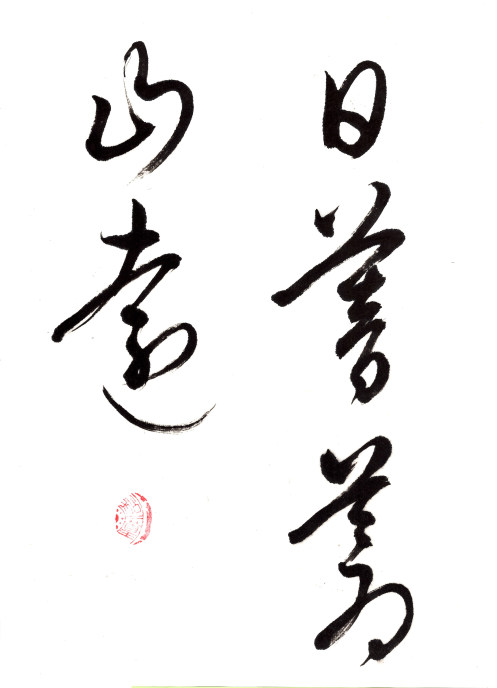 日暮蒼
山遠